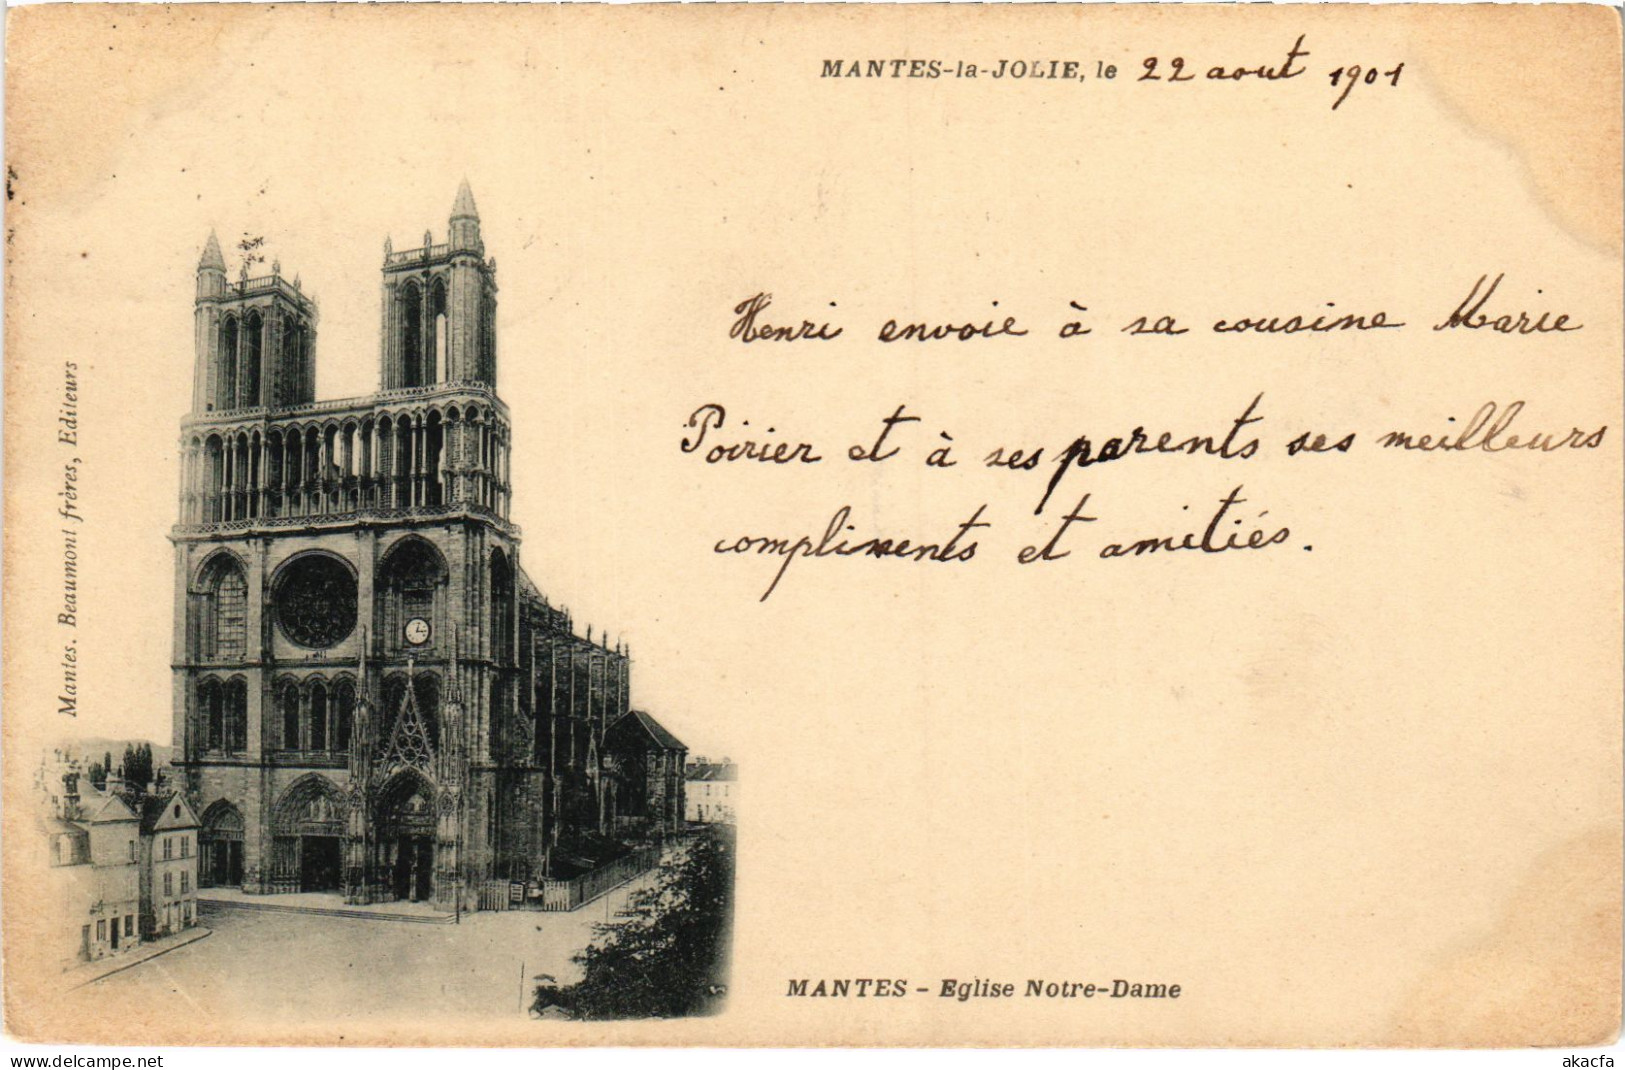 MANTES-la-JOLIE, le 22 aout 1901
Henri envoie à sa cousine Marie
Poirier et à ses parents ses meilleurs
compliments et amitiés.
Mantes. Beaumont frères, Editeurs
MANTES - Eglise Notre-Dame
www.delcampe.net
akacfa